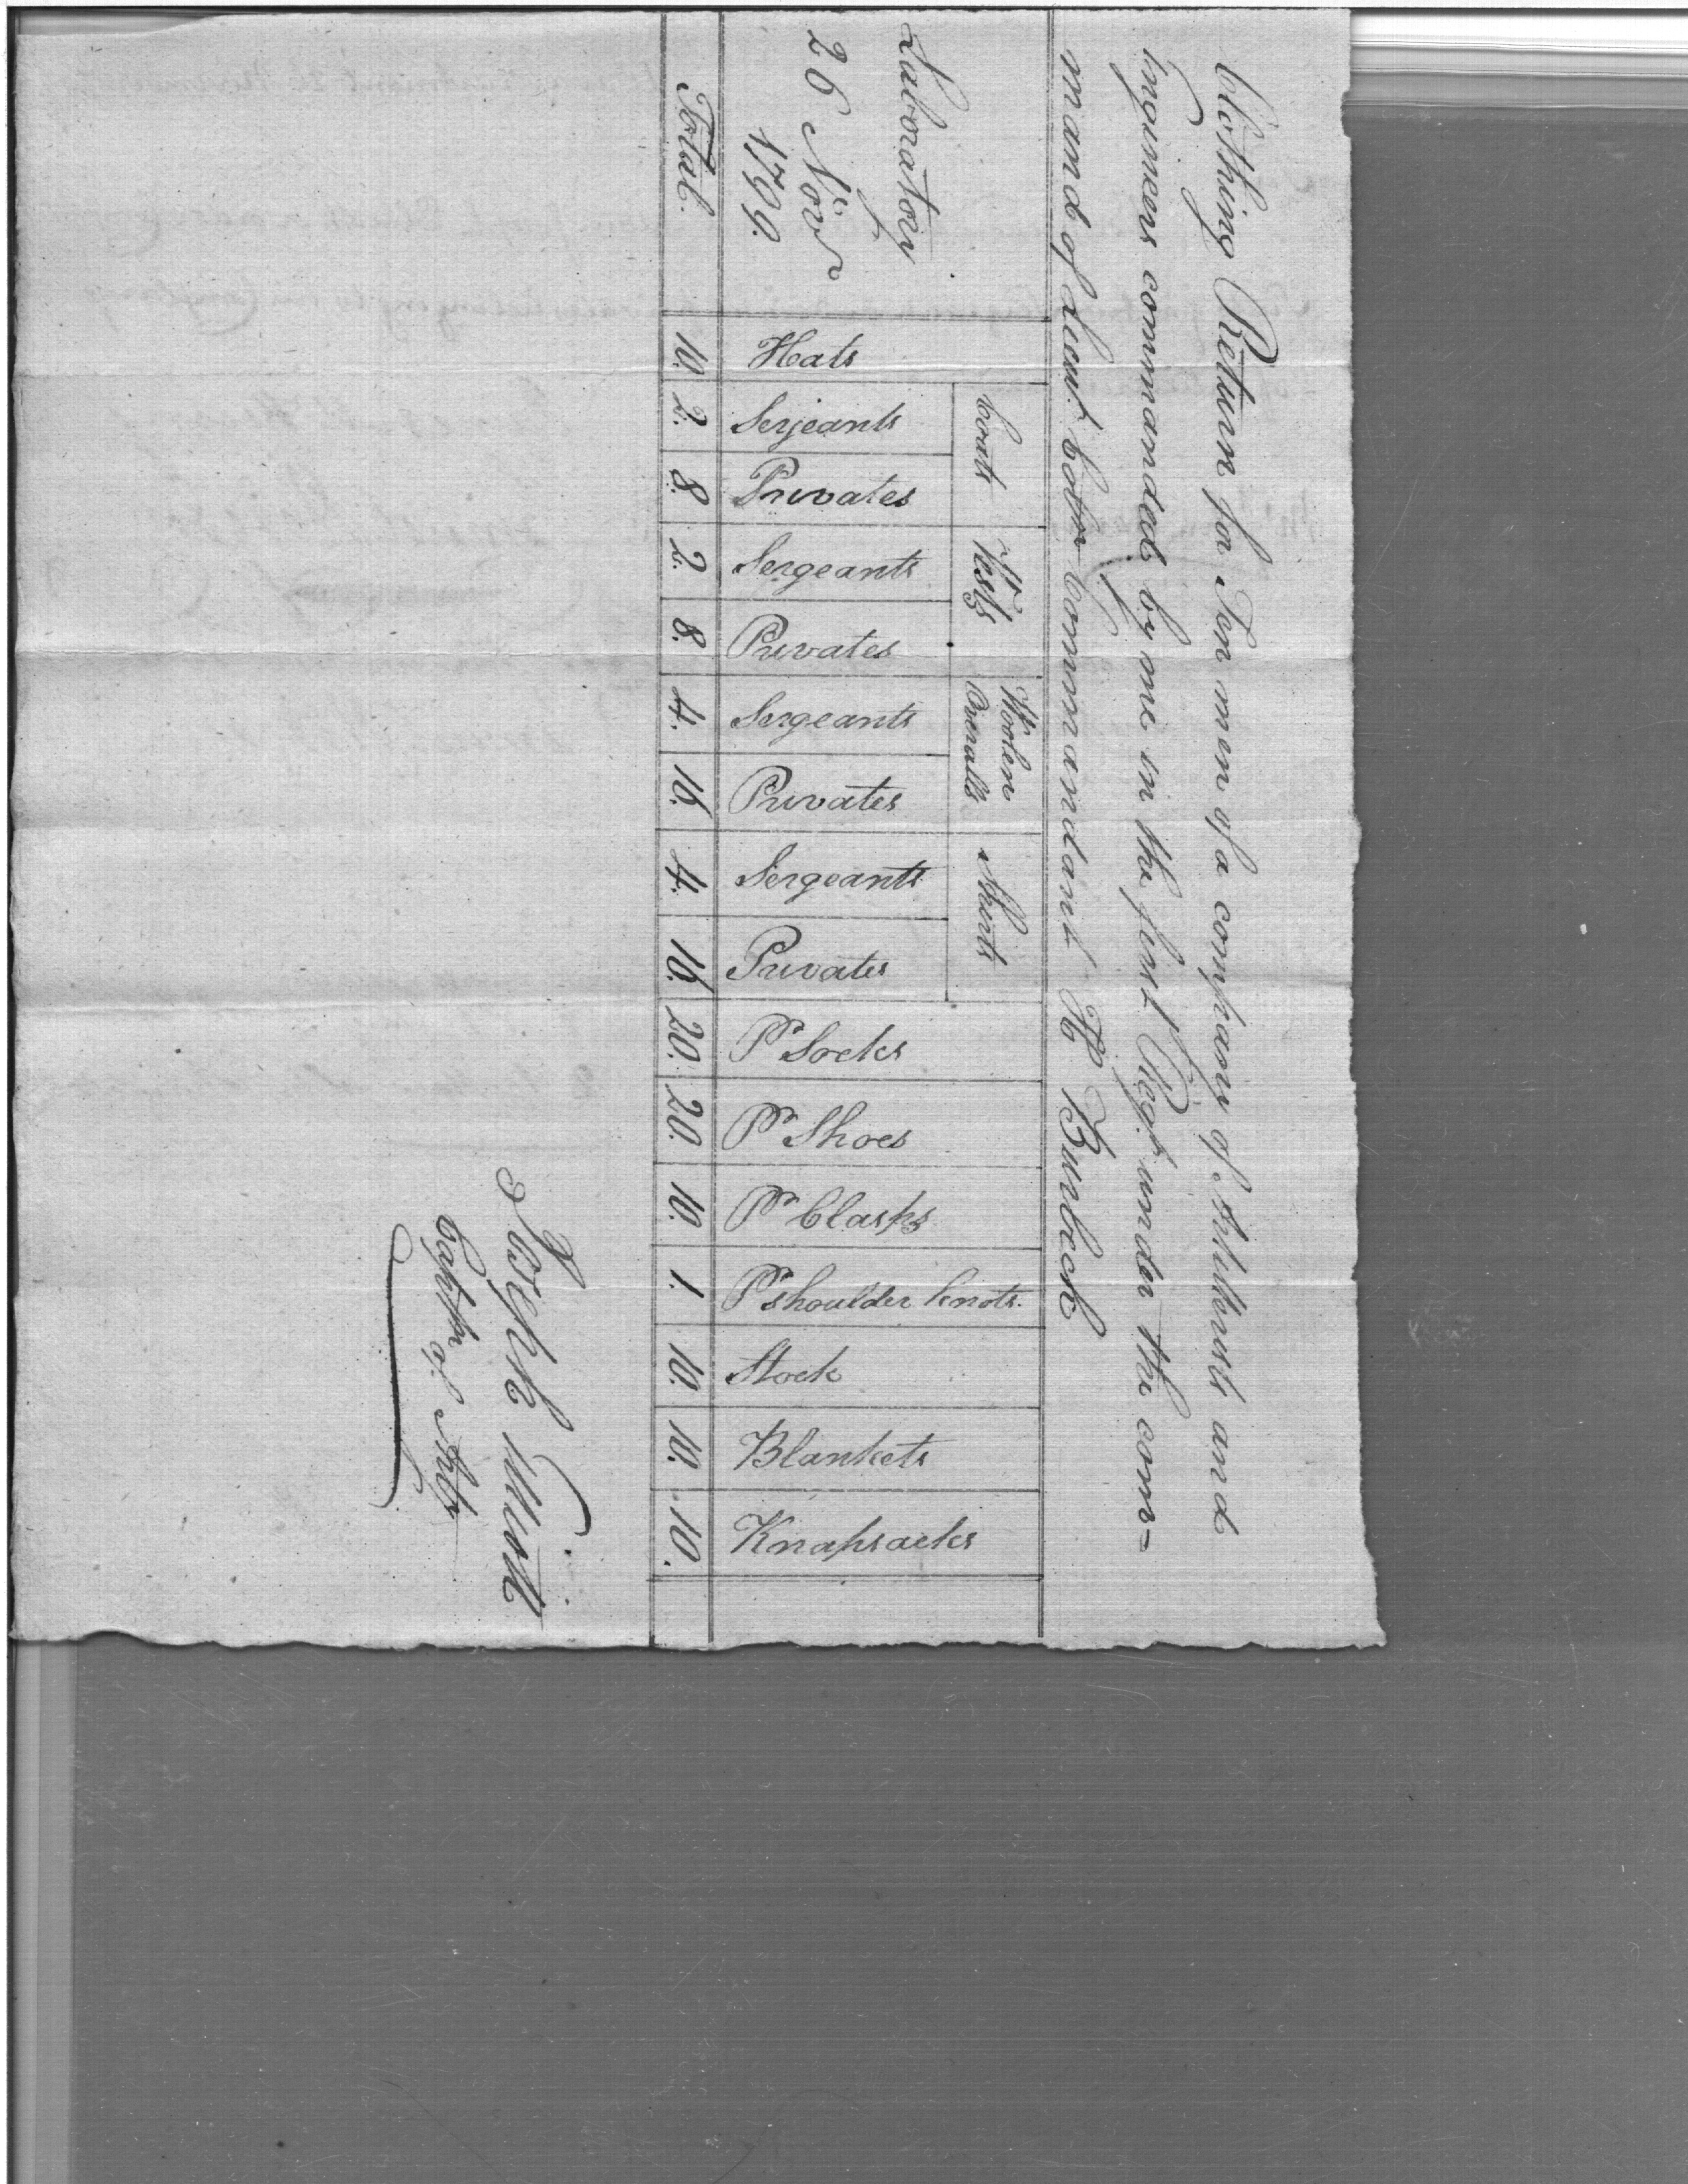 Clothing Return for Ten men of a company of Artillerists and
Engineers commanded by me in the first Regt. under the com=
mand of Lieut. Colon Commandant H Burbeck
Laboratory
26 Novr
1799.
Hats
Coats
Serjeants
Privates
Vests
Sergeants
Privates
Woolen
Overalls
Sergeants
Privates
Shirts
Sergeants
Privates
Pr Socks
Pr Shoes
Pr Clasps
Pr Shoulder knots.
Stock
Blankets
Knapsacks
Total. 10. 2. 8. 2. 8. 4. 16. 4. 16. 20. 20. 10. 1. 10. 10. 10.
Joseph Elliott
Captn of Arty